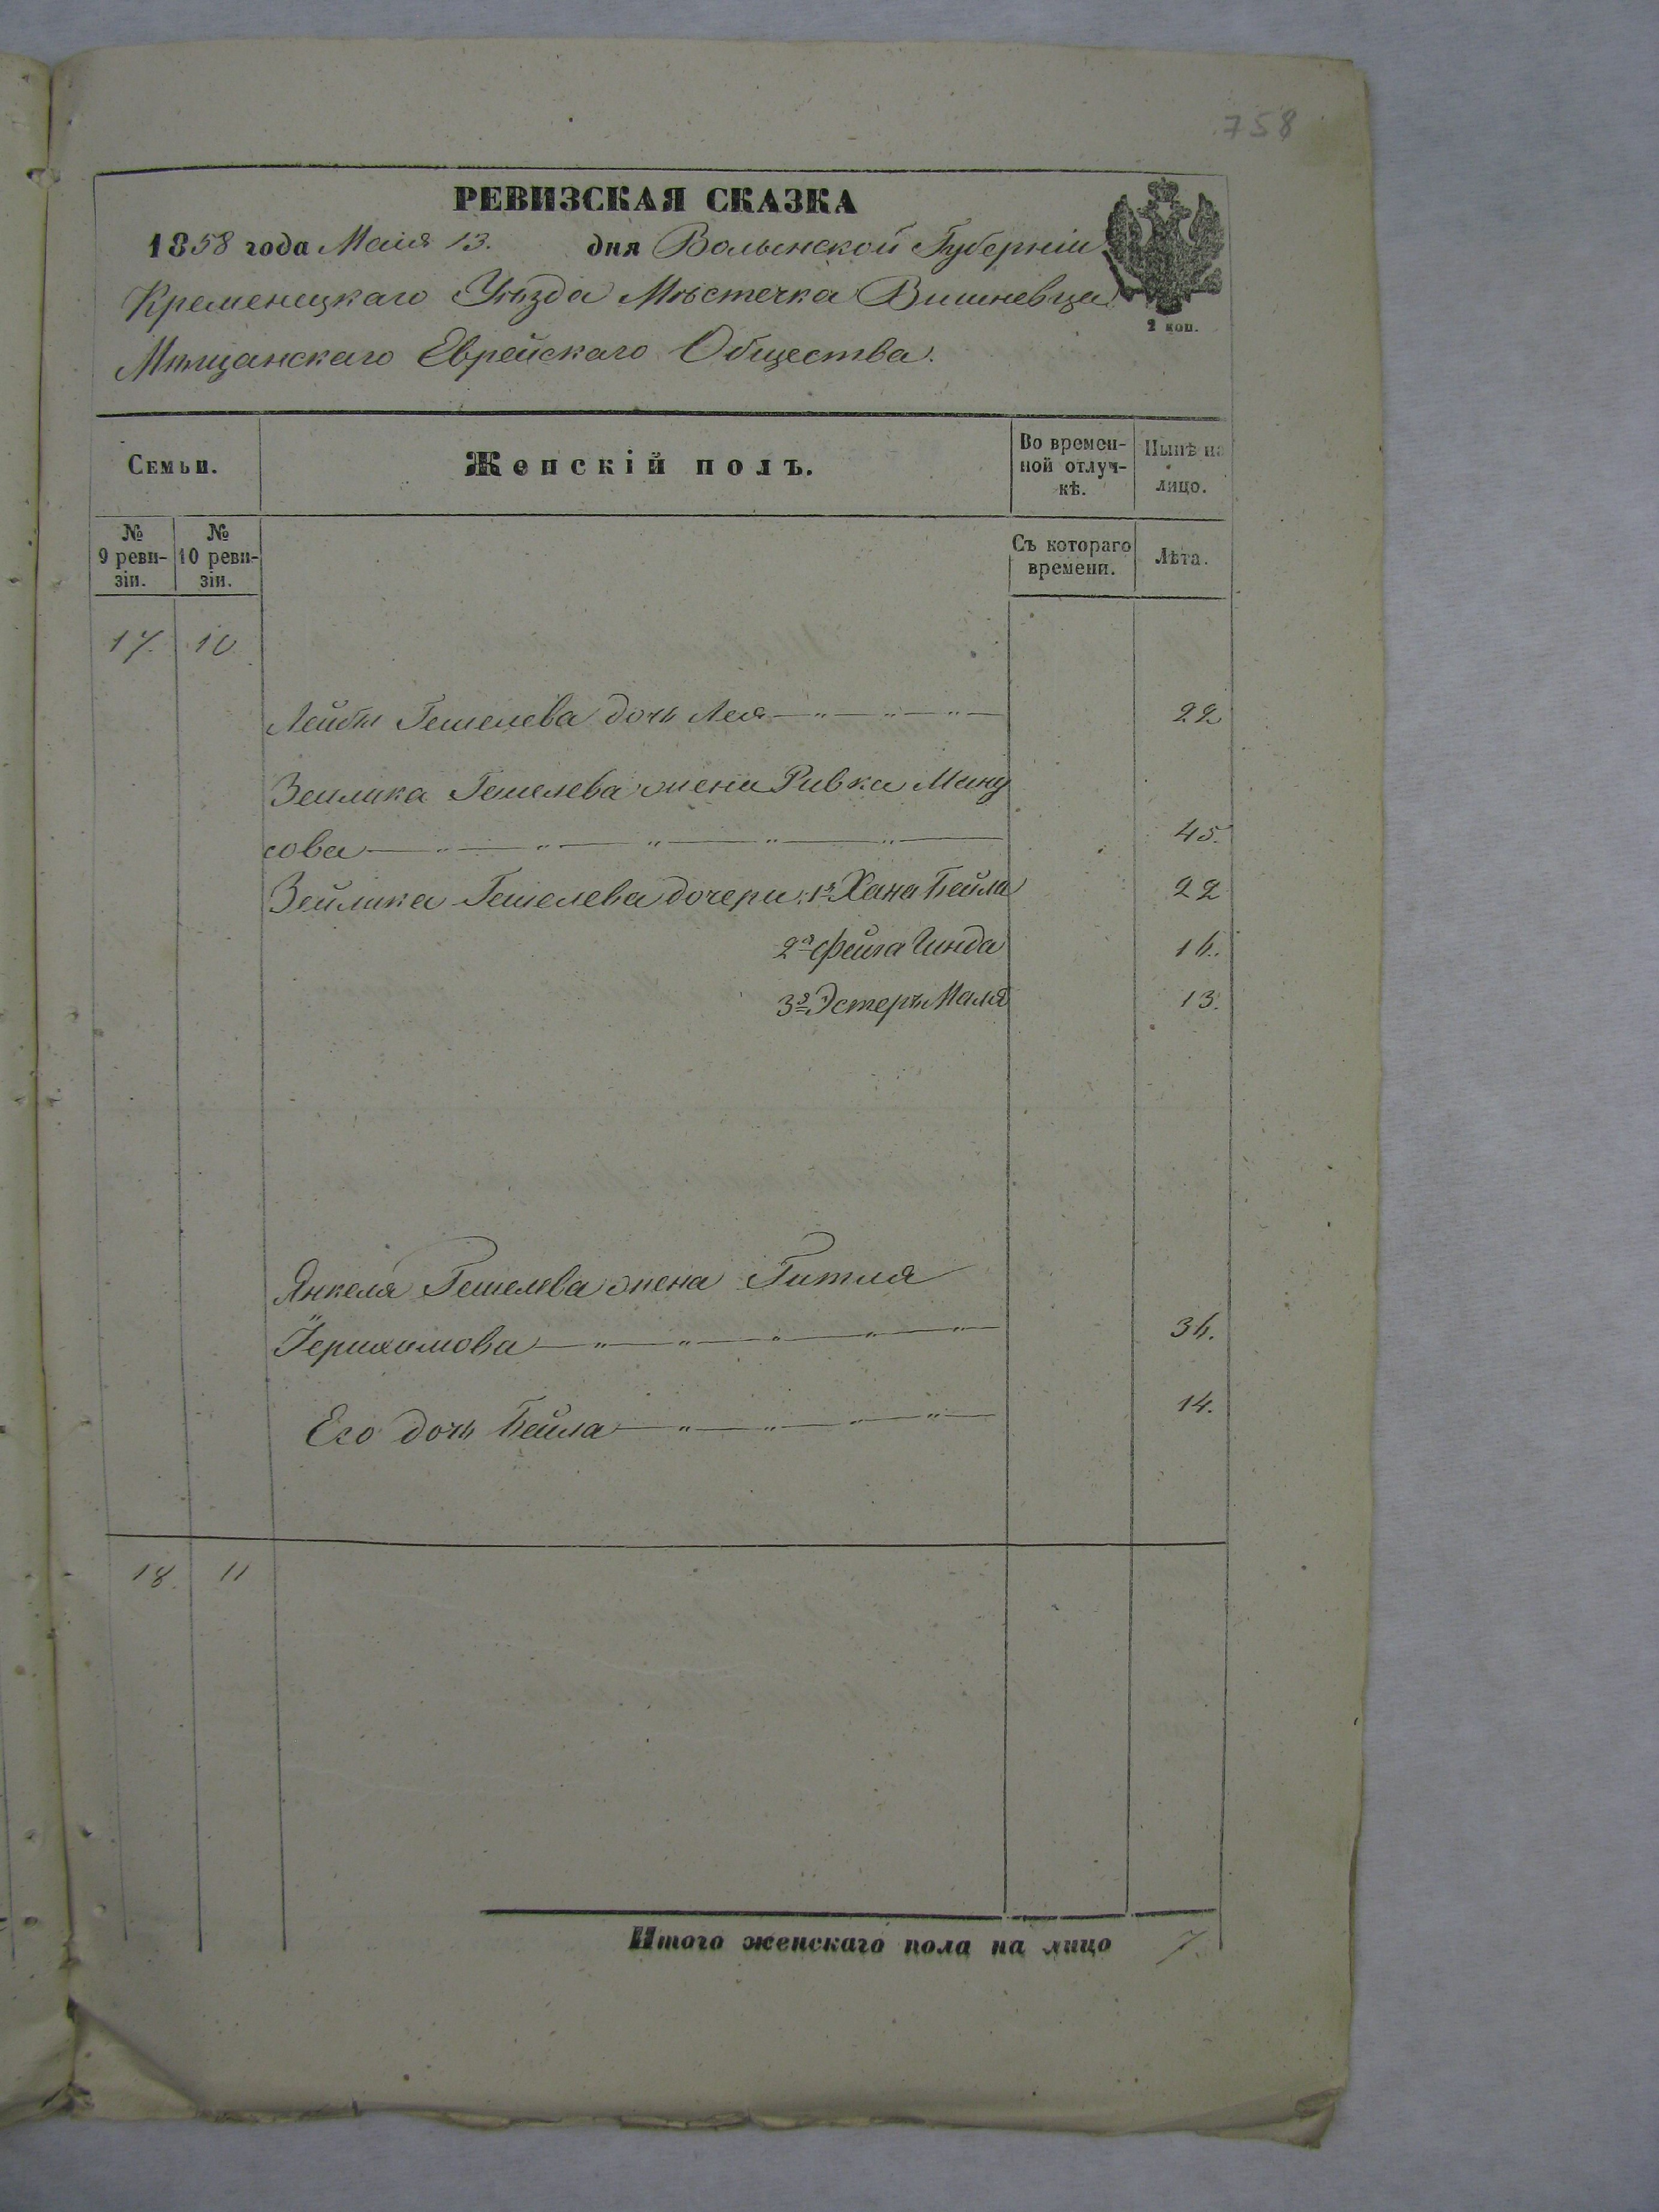 758
РЕВИЗСКАЯ СКАЗКА
1858 года Маія 13. дня Волынской Губерніи
Кременецкаго Уѣзда Мѣстечка Вишневца
2 коп.
Мѣщанскаго Еврейскаго Общества.
Семьи. Женскій полъ. Во времен-ной отлуч-кѣ. Нынѣ на лицо.
№ 9 реви-зіи. № 10 реви-зіи. Съ котораго времени. Лѣта.
17. 10
Лейбы Гешелева дочь Лея 22
Зейлика Гешелева жена Ривка Ману
сова 45.
Зейлика Гешелева дочери, 1я Хана Бейла 22
2я Фейга Гинда 16.
3я Эстеръ Маля 13.
Янкеля Гешелева жена Гитля
36.
Его дочь Бейла 14.
18. 11
Итого женскаго пола на лицо 7.